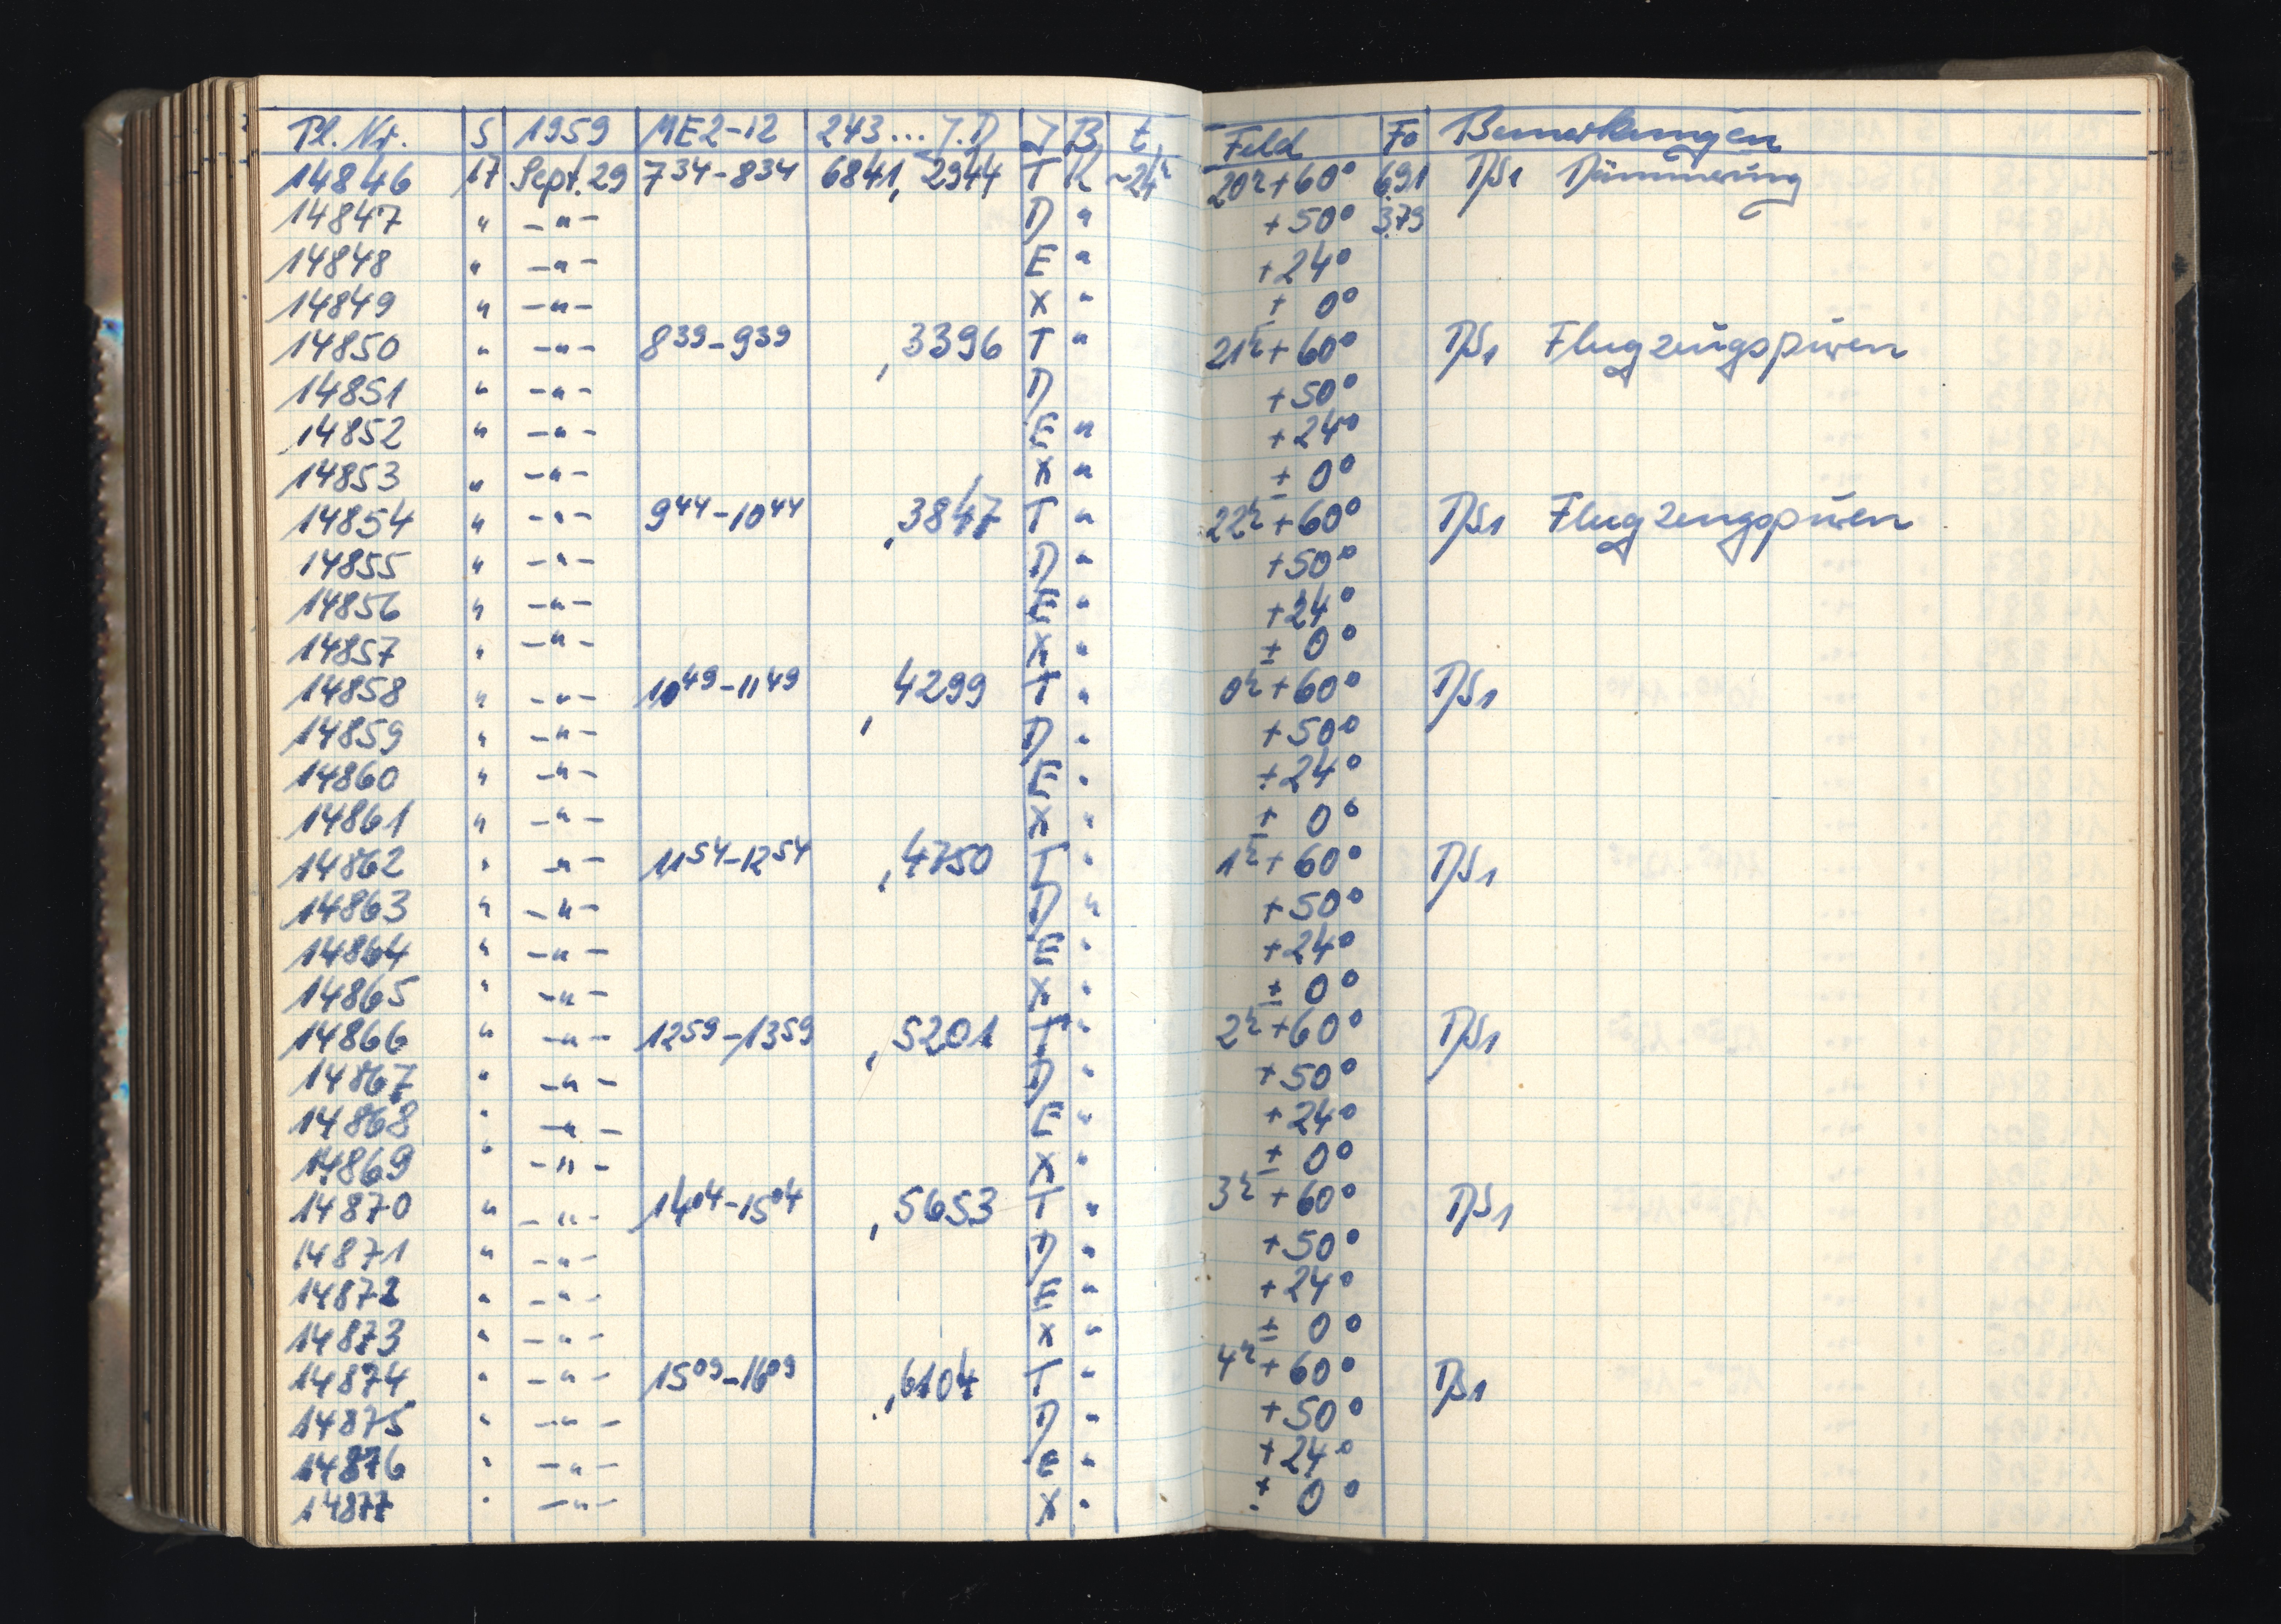 Pl. Nr. S 1959 ME2-12 243... J.D J B t Feld Fo Bemerkungen
14846 17 Sept. 29 7 34 - 8 34 6841, 2944 T K ~24h 20h + 60° 6.91 DS1 Dämmerung
14847 " -"- D " +50° 3.79
14848 " -"- E " +24°
14849 " -"- X " ± 0°
14850 " -"- 8 39 - 9 39 ,3396 T " 21h + 60° DS1 Flugzeugspuren
14851 " -"- D +50°
14852 " -"- E " +24°
14853 " -"- X " ± 0°
14854 " -"- 9 44 - 10 44 ,3847 T " 22h + 60° DS1 Flugzeugspuren
14855 " -"- D " +50°
14856 " -"- E " +24°
14857 " -"- X " ± 0°
14858 " -"- 10 49 - 11 49 ,4299 T " 0h + 60° DS1
14859 " -"- D " +50°
14860 " -"- E " +24°
14861 " -"- X " ± 0°
14862 " -"- 11 54 - 12 54 ,4750 T " 1h + 60° DS1
14863 " -"- D " +50°
14864 " -"- E " +24°
14865 " -"- X " ± 0°
14866 " -"- 12 59 - 13 59 ,5201 T " 2h + 60° DS1
14867 " -"- D " +50°
14868 " -"- E " +24°
14869 " -"- X " ± 0°
14870 " -"- 14 04 - 15 04 ,5653 T " 3h + 60° DS1
14871 " -"- D " +50°
14872 " -"- E " +24°
14873 " -"- X " ± 0°
14874 " -"- 15 09 - 16 09 ,6104 T " 4h + 60° DS1
14875 " -"- D " +50°
14876 " -"- E " +24°
14877 " -"- X " ± 0°